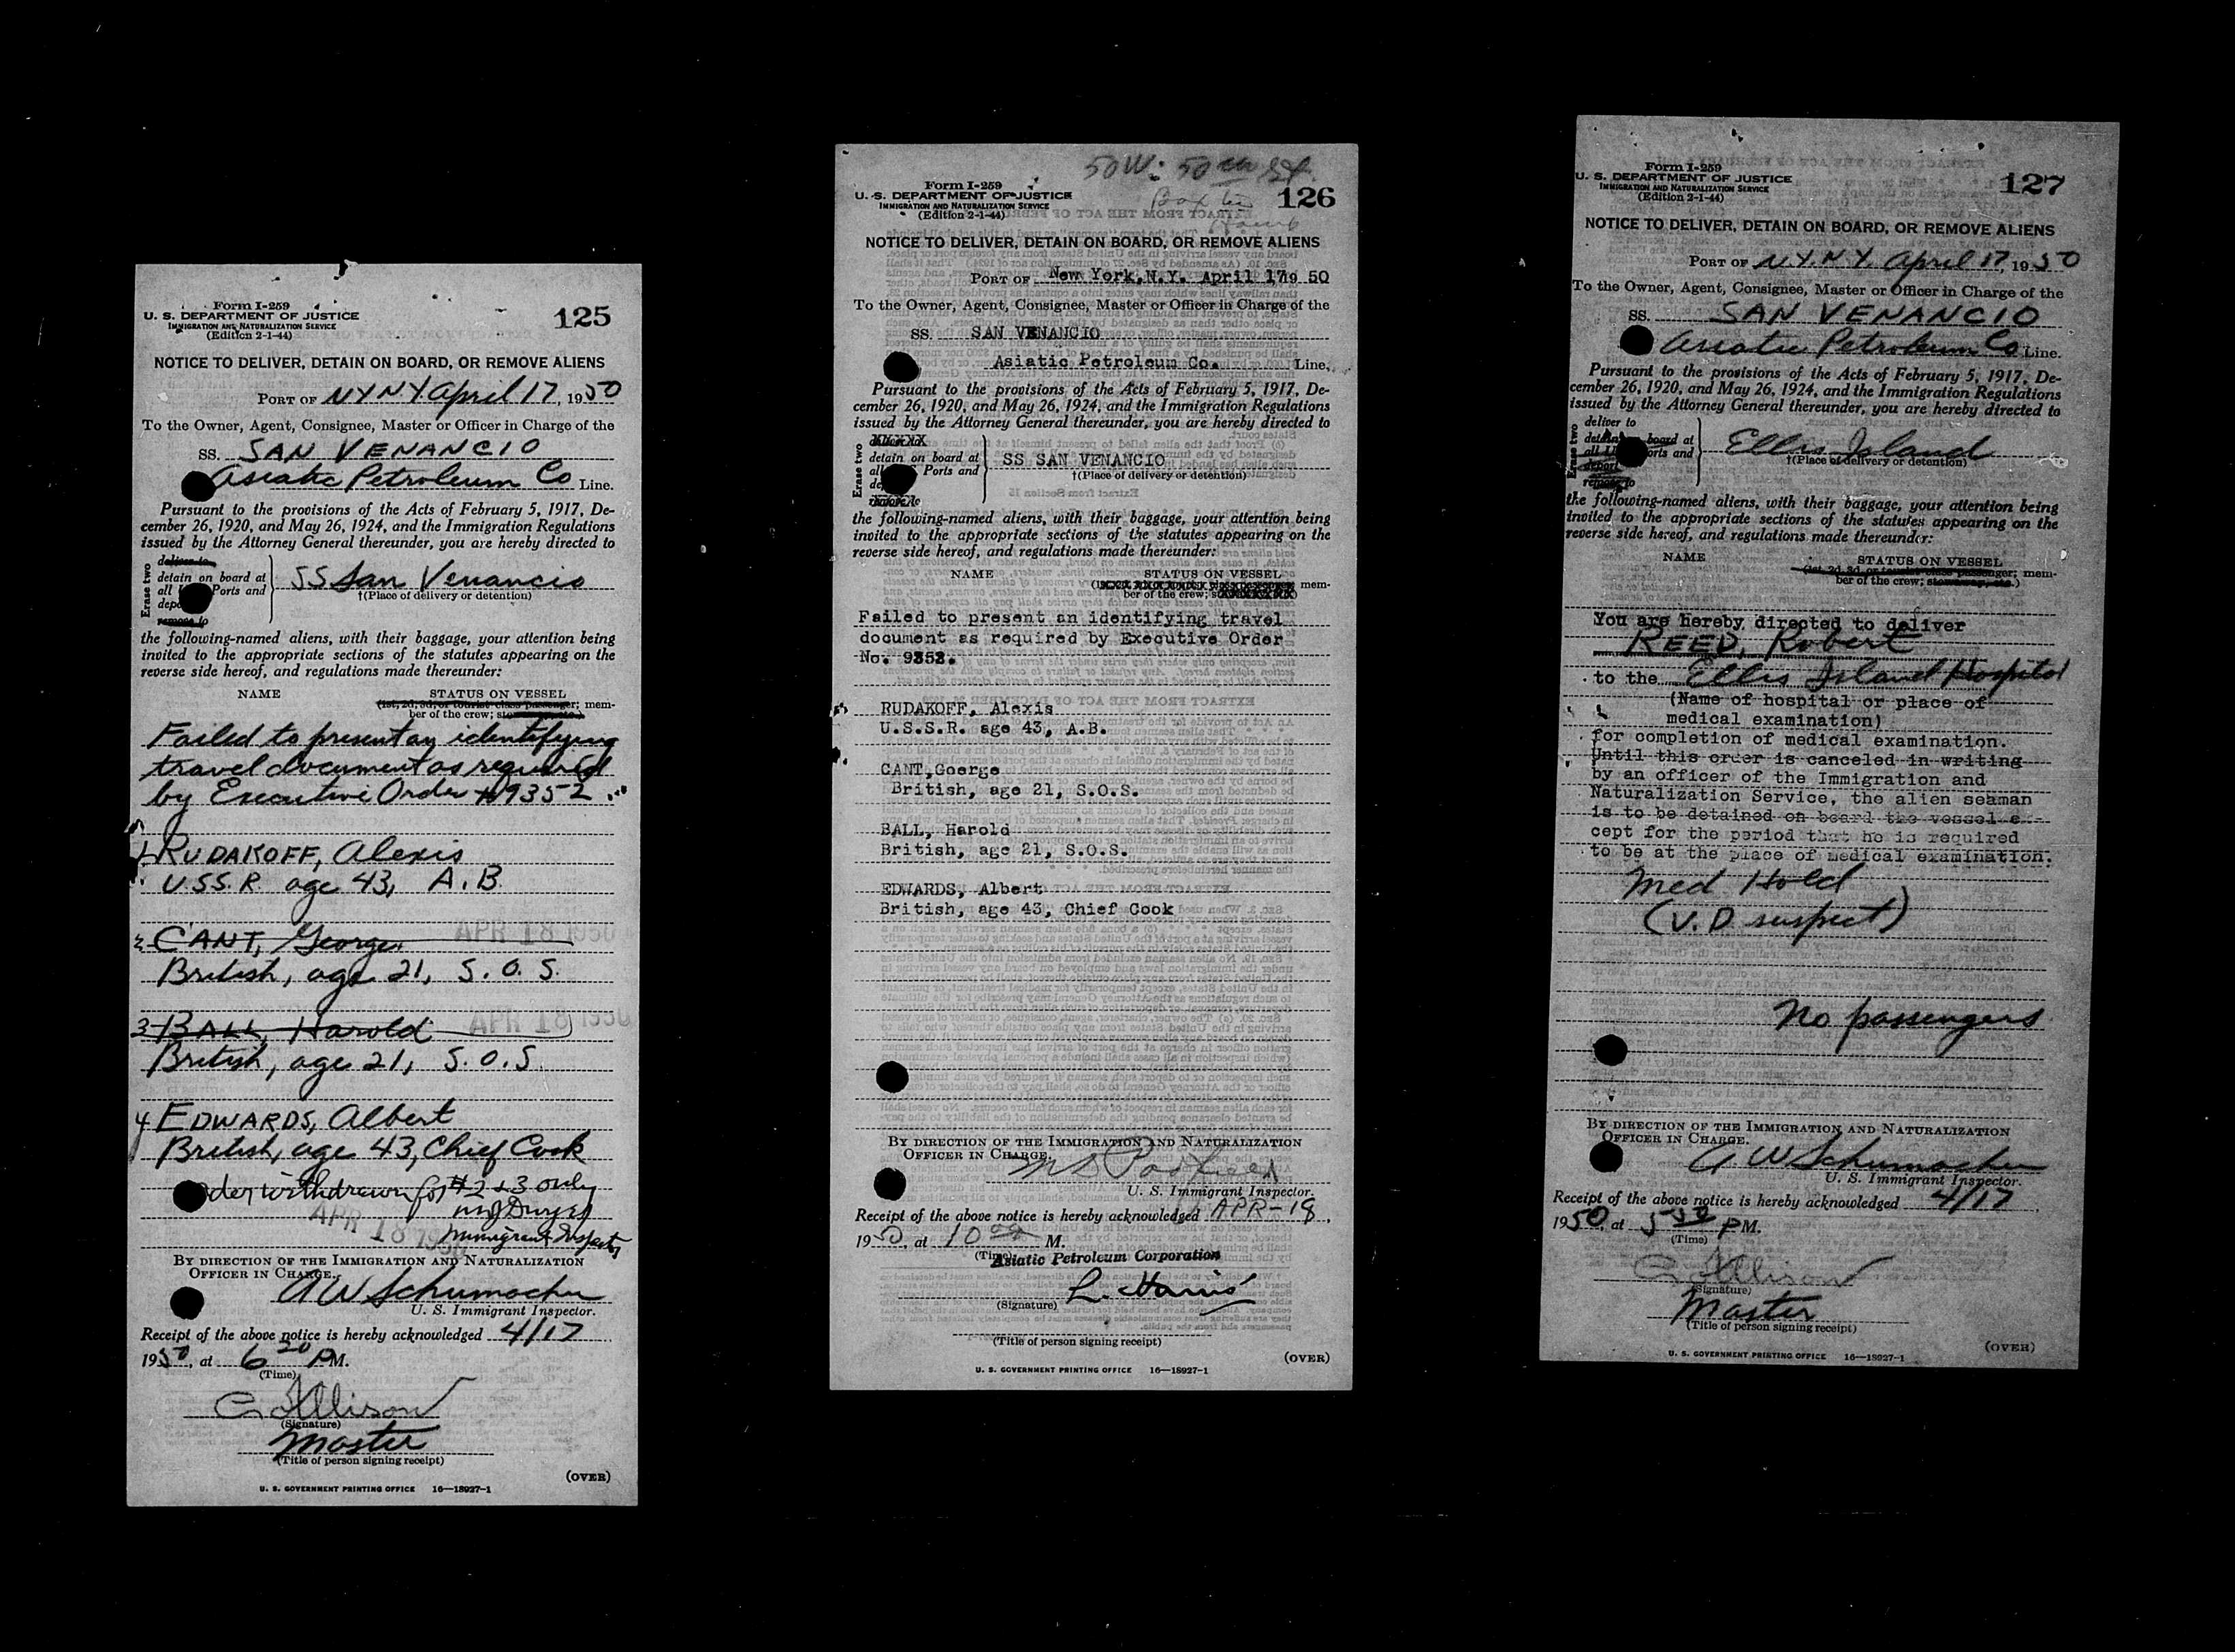 Form I-259
U. S. DEPARTMENT OF JUSTICE
IMMIGRATION AND NATURALIZATION SERVICE
(Edition 2-1-44)
125
NOTICE TO DELIVER, DETAIN ON BOARD, OR REMOVE ALIENS
PORT OF N Y N.Y. April 17, 1950
To the Owner, Agent, Consignee, Master or Officer in Charge of the
SS. SAN VENANCIO
Asiatic Petroleum Co Line.
Pursuant to the provisions of the Acts of February 5, 1917, De-
cember 26, 1920, and May 26, 1924, and the Immigration Regulations
issued by the Attorney General thereunder, you are hereby directed to
Erase two
deliver to
detain on board at
all Ports and
remove to
SS San Venancio
†(Place of delivery or detention)
the following-named aliens, with their baggage, your attention being
invited to the appropriate sections of the statutes appearing on the
reverse side hereof, and regulations made thereunder:
NAME STATUS ON VESSEL
(1st, 2d, 3d, or tourist class passenger; mem-
ber of the crew;
Failed to present an identifying
travel document as required
by Executive Order #9352.
1. RUDAKOFF, Alexis
U.S.S.R. age 43, A.B.
2 CANT, George
APR 18 1950
British, age 21, S.O.S.
3 BALL, Harold
APR 18 1950
British, age 21, S.O.S.
4 EDWARDS, Albert
British, age 43, Chief Cook
der withdrawn for #2 & 3 only
APR 18 1950
Immigrant Inspector
BY DIRECTION OF THE IMMIGRATION AND NATURALIZATION
OFFICER IN CHARGE.
A W Schumacher
U. S. Immigrant Inspector.
Receipt of the above notice is hereby acknowledged 4/17
1950, at 6 20 PM.
(Time)
G Allison
(Signature)
Master
(Title of person signing receipt)
(OVER)
U. S. GOVERNMENT PRINTING OFFICE 16—18927-1
50 W. 50th St.
Form I-259
U. S. DEPARTMENT OF JUSTICE
IMMIGRATION AND NATURALIZATION SERVICE
(Edition 2-1-44)
126
NOTICE TO DELIVER, DETAIN ON BOARD, OR REMOVE ALIENS
PORT OF New York, N.Y. April 17, 1950
To the Owner, Agent, Consignee, Master or Officer in Charge of the
SS. SAN VENANCIO
Asiatic Petroleum Co. Line,
Pursuant to the provisions of the Acts of February 5, 1917, De-
cember 26, 1920, and May 26, 1924, and the Immigration Regulations
issued by the Attorney General thereunder, you are hereby directed to
Erase two
detain on board at
all Ports and
remove to
SS SAN VENANCIO
†(Place of delivery or detention)
the following-named aliens, with their baggage, your attention being
invited to the appropriate sections of the statutes appearing on the
reverse side hereof, and regulations made thereunder:
NAME STATUS ON VESSEL
mem-
ber of the crew;
Failed to present an identifying travel
document as required by Executive Order
No. 9352.
RUDAKOFF, Alexis
U.S.S.R. age 43, A.B.
CANT,Goerge
British, age 21, S.O.S.
BALL, Harold
British, age 21, S.O.S.
EDWARDS, Albert
British, age 43, Chief Cook
BY DIRECTION OF THE IMMIGRATION AND NATURALIZATION
OFFICER IN CHARGE.
U. S. Immigrant Inspector.
Receipt of the above notice is hereby acknowledged APR-18,
1950, at 10 M.
(Time)
Asiatic Petroleum Corporation
L. Harris
(Signature)
(Title of person signing receipt)
(OVER)
U. S. GOVERNMENT PRINTING OFFICE 16—18927-1
Form I-259
U. S. DEPARTMENT OF JUSTICE
IMMIGRATION AND NATURALIZATION SERVICE
(Edition 2-1-44)
127
NOTICE TO DELIVER, DETAIN ON BOARD, OR REMOVE ALIENS
PORT OF N.Y.N.Y. April 17, 1950
To the Owner, Agent, Consignee, Master or Officer in Charge of the
SS. SAN VENANCIO
Asiatic Petroleum Co Line.
Pursuant to the provisions of the Acts of February 5, 1917, De-
cember 26, 1920, and May 26, 1924, and the Immigration Regulations
issued by the Attorney General thereunder, you are hereby directed to
Erase two
deliver to
detain board at
all Ports and
deport
remove to
Ellis Island
†(Place of delivery or detention)
the following-named aliens, with their baggage, your attention being
invited to the appropriate sections of the statutes appearing on the
reverse side hereof, and regulations made thereunder:
NAME STATUS ON VESSEL
(1st, 2d, 3d, or tourist class passenger; mem-
ber of the crew;
You are hereby directed to deliver
REED, Robert
to the Ellis Island Hospital
(Name of hospital or place of
medical examination)
for completion of medical examination.
Until this order is canceled in writing
by an officer of the Immigration and
Naturalization Service, the alien seaman
is to be detained on board the vessel e-
cept for the period that he is required
to be at the place of medical examination.
Med Hold
(V.D suspect)
No passengers
BY DIRECTION OF THE IMMIGRATION AND NATURALIZATION
OFFICER IN CHARGE.
A W Schumacher
U. S. Immigrant Inspector.
Receipt of the above notice is hereby acknowledged 4/17
1950, at 5 50 PM.
(Time)
G Allison
(Signature)
Master
(Title of person signing receipt)
(OVER)
U. S. GOVERNMENT PRINTING OFFICE 16—18927-1